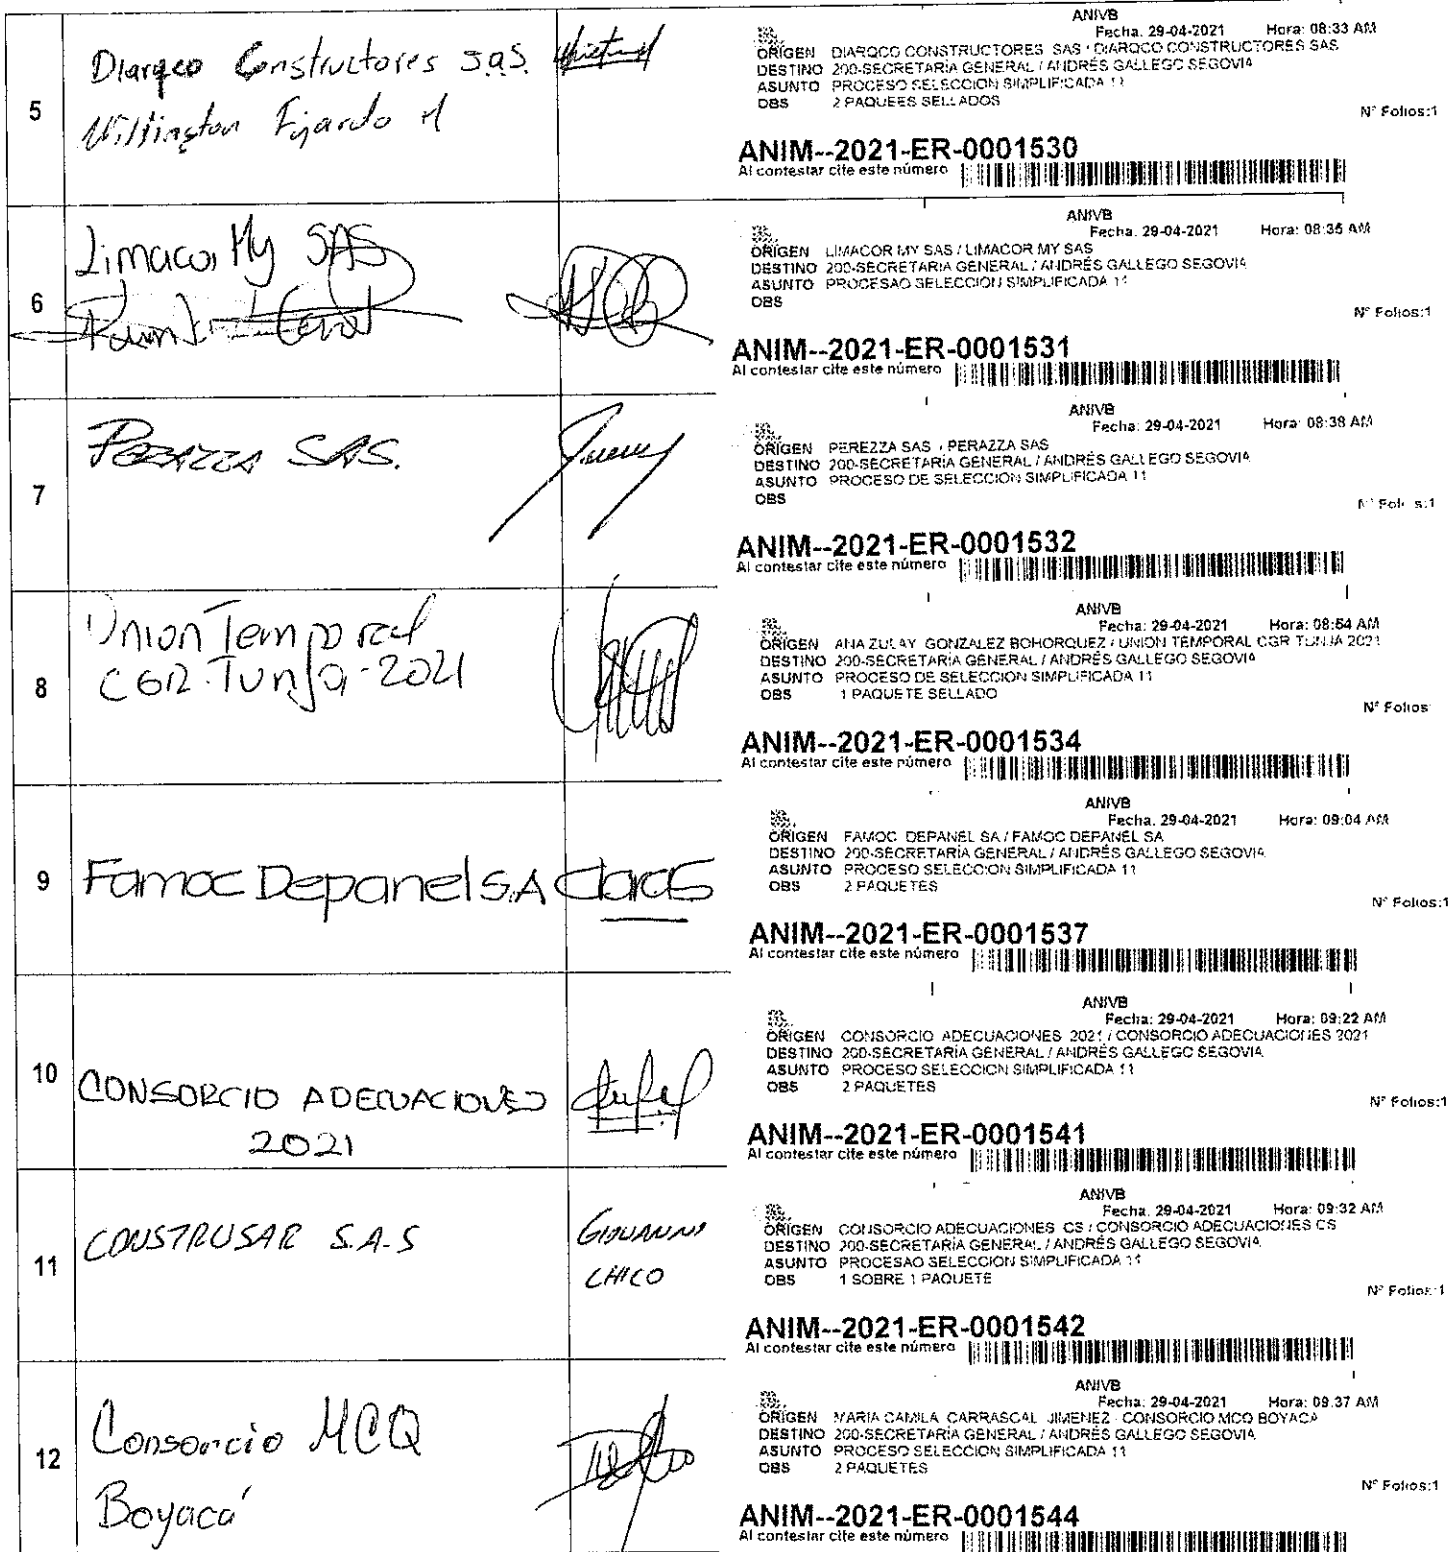 5
Diarqco Constructores S.a.S.
Willington Fajardo M
ANIVB
Fecha. 29-04-2021 Hora: 08:33 AM
ORIGEN DIARQCO CONSTRUCTORES SAS / DIARQCO CONSTRUCTORES SAS
DESTINO 200-SECRETARÍA GENERAL / ANDRÉS GALLEGO SEGOVIA
ASUNTO PROCESO SELECCION SIMPLIFICADA 11
OBS 2 PAQUEES SELLADOS
N° Folios:1
ANIM--2021-ER-0001530
Al contestar cite este número
6
Limacor My SAS
ANIVB
Fecha. 29-04-2021 Hora: 08:35 AM
ORIGEN LIMACOR MY SAS / LIMACOR MY SAS
DESTINO 200-SECRETARÍA GENERAL / ANDRÉS GALLEGO SEGOVIA
ASUNTO PROCESAO SELECCION SIMPLIFICADA 11
OBS
N° Folios:1
ANIM--2021-ER-0001531
Al contestar cite este número
7
PERAZZA SAS.
ANIVB
Fecha: 29-04-2021 Hora: 08:38 AM
ORIGEN PEREZZA SAS / PERAZZA SAS
DESTINO 200-SECRETARÍA GENERAL / ANDRÉS GALLEGO SEGOVIA
ASUNTO PROCESO DE SELECCION SIMPLIFICADA 11
OBS
N° Folios:1
ANIM--2021-ER-0001532
Al contestar cite este número
8
Union Temporal
CGR-Tunja-2021
ANIVB
Fecha: 29-04-2021 Hora: 08:54 AM
ORIGEN ANA ZULAY GONZALEZ BOHORQUEZ / UNION TEMPORAL CGR TUNJA 2021
DESTINO 200-SECRETARÍA GENERAL / ANDRÉS GALLEGO SEGOVIA
ASUNTO PROCESO DE SELECCION SIMPLIFICADA 11
OBS 1 PAQUETE SELLADO
N° Folios
ANIM--2021-ER-0001534
Al contestar cite este número
9
Famoc Depanel S.A
ANIVB
Fecha. 29-04-2021 Hora: 09:04 AM
ORIGEN FAMOC DEPANEL SA / FAMOC DEPANEL SA
DESTINO 200-SECRETARÍA GENERAL / ANDRÉS GALLEGO SEGOVIA
ASUNTO PROCESO SELECCION SIMPLIFICADA 11
OBS 2 PAQUETES
N° Folios:1
ANIM--2021-ER-0001537
Al contestar cite este número
10
CONSORCIO ADECUACIONES
2021
ANIVB
Fecha: 29-04-2021 Hora: 09:22 AM
ORIGEN CONSORCIO ADECUACIONES 2021 / CONSORCIO ADECUACIONES 2021
DESTINO 200-SECRETARÍA GENERAL / ANDRÉS GALLEGO SEGOVIA
ASUNTO PROCESO SELECCION SIMPLIFICADA 11
OBS 2 PAQUETES
N° Folios:1
ANIM--2021-ER-0001541
Al contestar cite este número
11
CONSTRUSAR S.A.S
GIOVANNI
CHICO
ANIVB
Fecha. 29-04-2021 Hora: 09:32 AM
ORIGEN CONSORCIO ADECUACIONES CS / CONSORCIO ADECUACIONES CS
DESTINO 200-SECRETARÍA GENERAL / ANDRÉS GALLEGO SEGOVIA
ASUNTO PROCESAO SELECCION SIMPLIFICADA 11
OBS 1 SOBRE 1 PAQUETE
N° Folios:1
ANIM--2021-ER-0001542
Al contestar cite este número
12
Consorcio MCQ
Boyacá
ANIVB
Fecha: 29-04-2021 Hora: 09:37 AM
ORIGEN MARIA CAMILA CARRASCAL JIMENEZ / CONSORCIO MCQ BOYACA
DESTINO 200-SECRETARÍA GENERAL / ANDRÉS GALLEGO SEGOVIA
ASUNTO PROCESO SELECCION SIMPLIFICADA 11
OBS 2 PAQUETES
N° Folios:1
ANIM--2021-ER-0001544
Al contestar cite este número